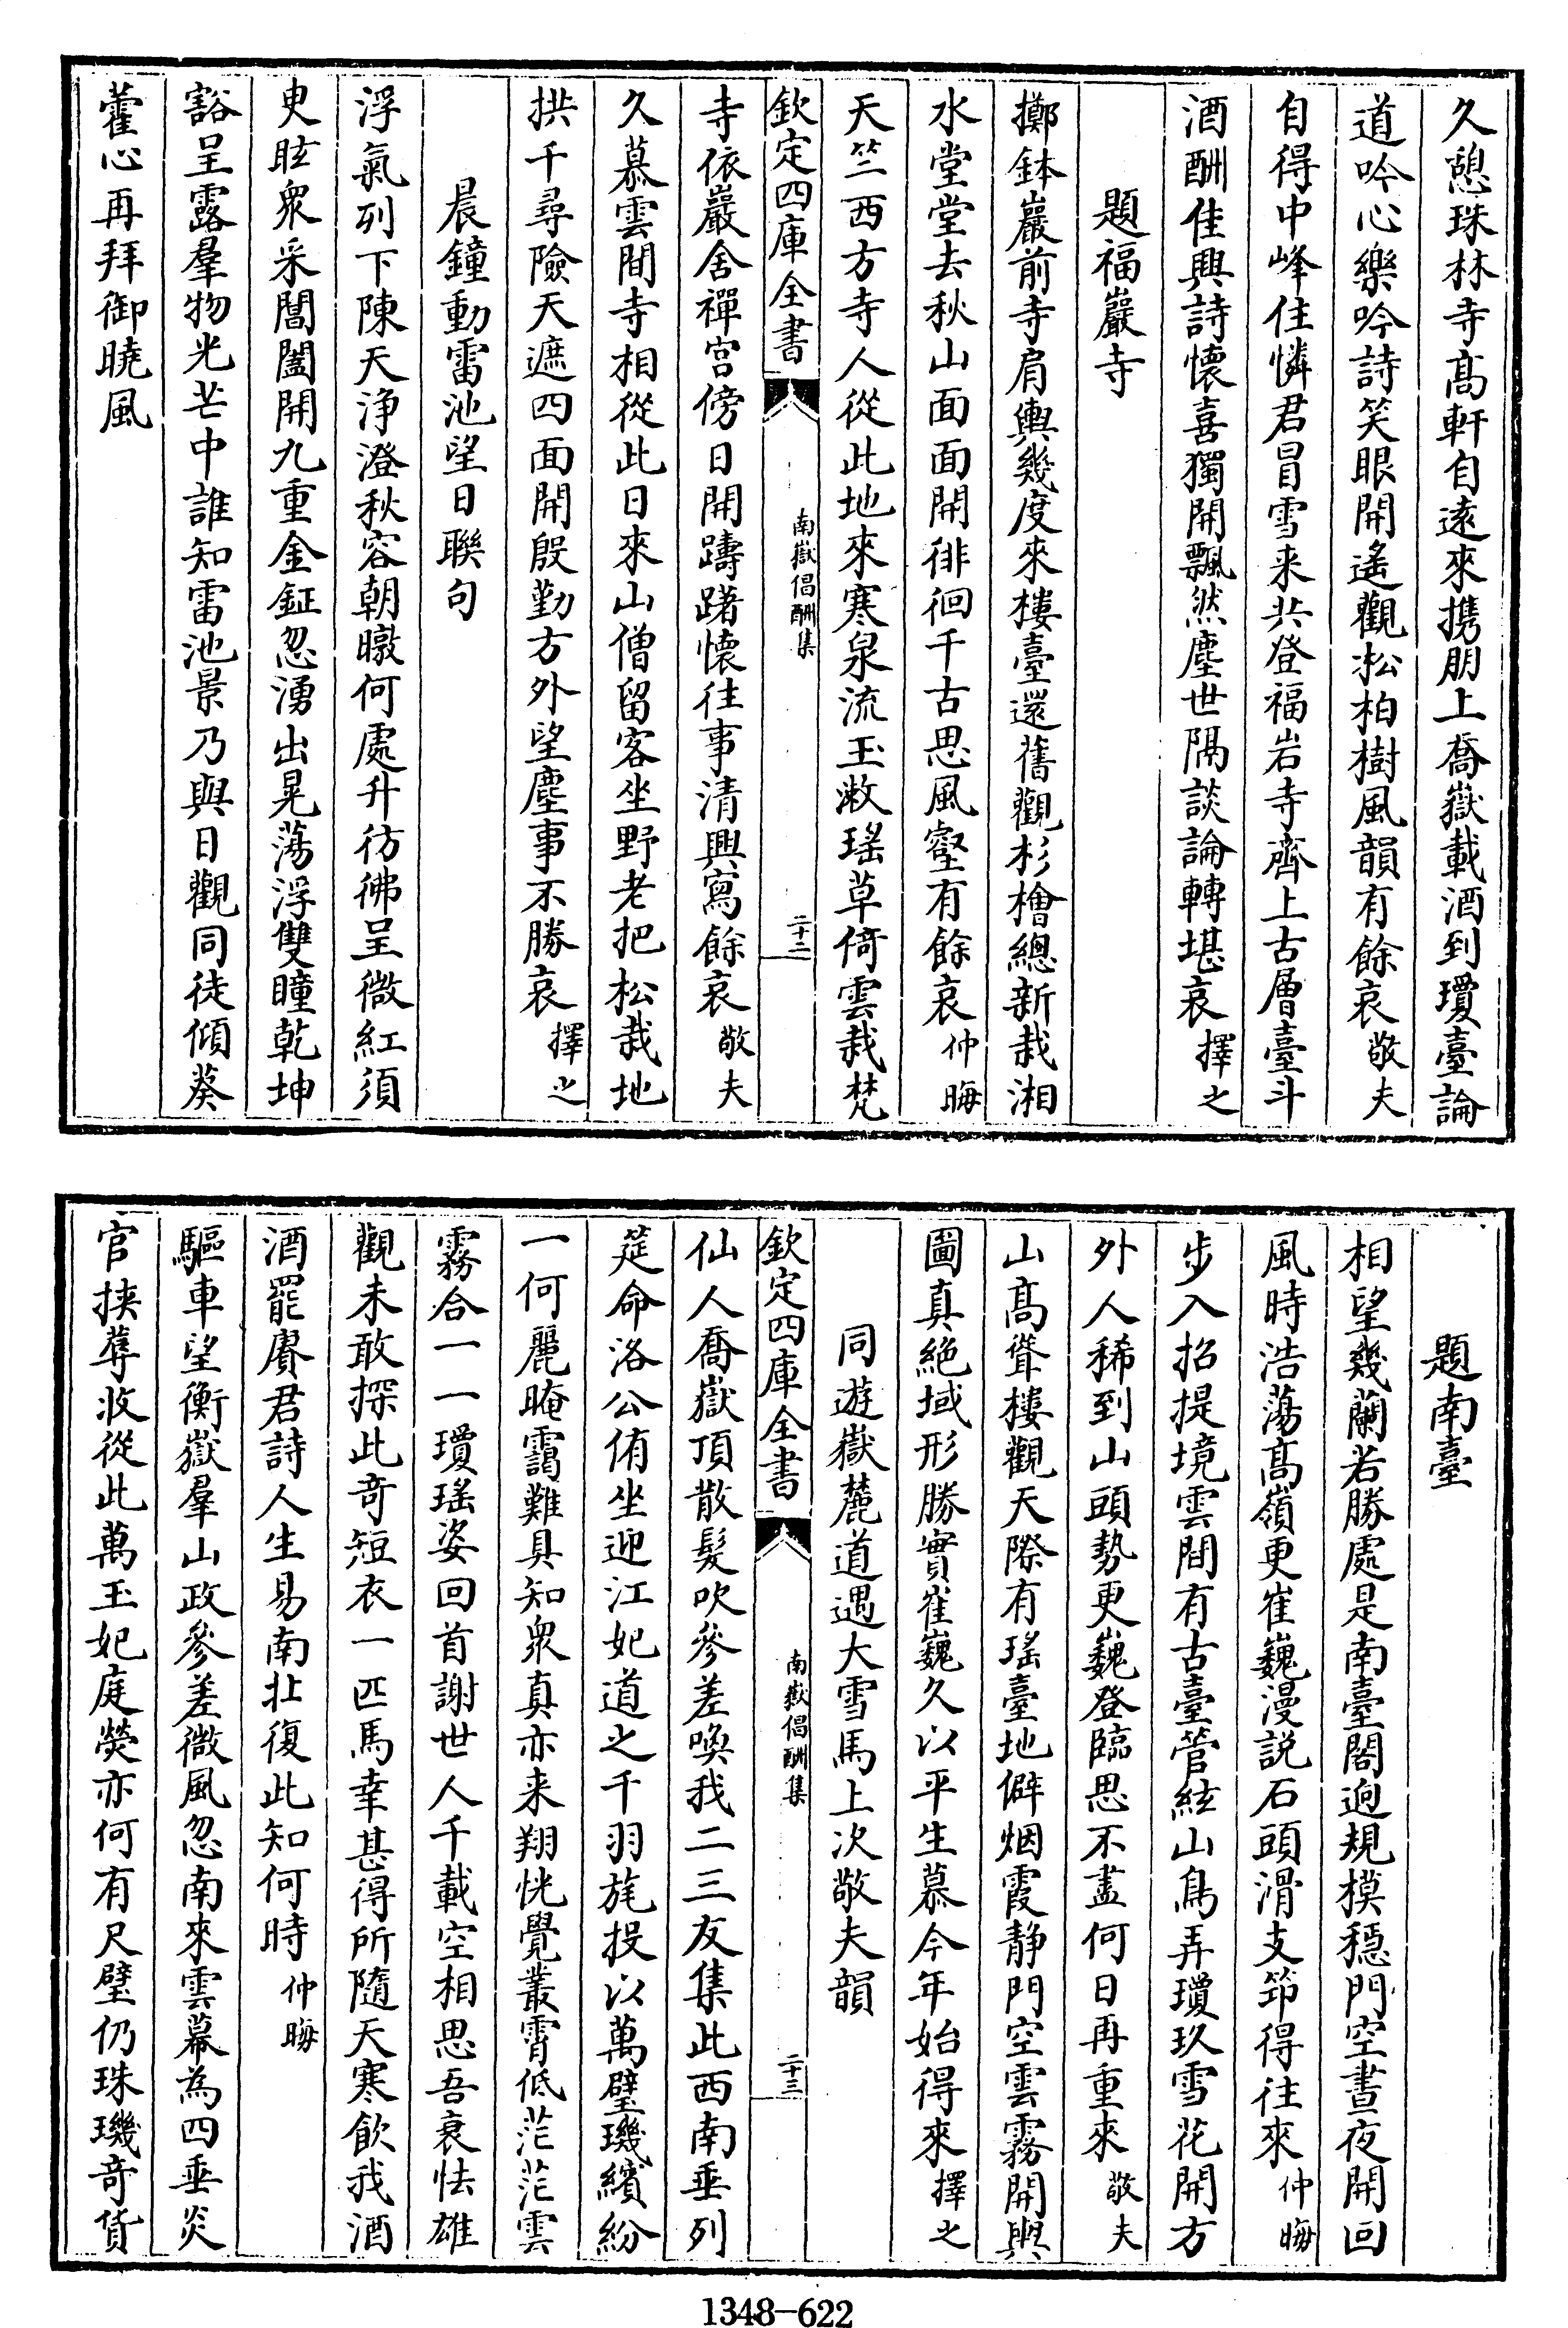 久憩珠林寺髙軒自逺來携朋上喬嶽載酒到瓊臺論
道吟心樂吟詩笑眼開遙觀松柏樹風韻有餘哀敬夫
自得中峰住憐君冒雪来共登福岩寺齊上古層臺斗
酒酬佳興詩懷喜獨開飄然塵世隔談論轉堪哀擇之
題福巖寺
擲鉢巖前寺肩輿幾度來樓臺還舊觀杉檜總新栽湘
水堂堂去秋山面面開徘徊千古思風壑有餘哀仲晦
天竺西方寺人從此地來寒泉流玉漱瑤草倚雲栽梵
欽定四庫全書
南嶽倡酬集
二十二
寺依巖舍禪宫傍日開躊躇懷往事清興寫餘哀敬夫
久慕雲間寺相從此日來山僧留客坐野老把松栽地
拱千尋險天遮四面開殷勤方外望塵事不勝哀擇之
晨鐘動雷池望日聯句
浮氣列下陳天浄澄秋容朝暾何處升彷彿呈微紅須
臾眩衆采閶闔開九重金鉦忽湧出晃蕩浮雙瞳乾坤
豁呈露羣物光芒中誰知雷池景乃與日觀同徒傾葵
藿心再拜御曉風
題南臺
相望幾蘭若勝處是南臺閣逈規模穏門空晝夜開回
風時浩蕩髙嶺更崔巍漫説石頭滑支筇得往來仲晦
步入招提境雲間有古臺管絃山鳥弄瓊玖雪花開方
外人稀到山頭勢更巍登臨思不盡何日再重來敬夫
山髙聳樓觀天際有瑤臺地僻烟霞静門空雲霧開興
圖真絶域形勝實崔巍久以平生慕今年始得來擇之
同遊嶽麓道遇大雪馬上次敬夫韻
欽定四庫全書
南嶽倡酬集
二十三
仙人喬嶽頂散髪吹參差喚我二三友集此西南垂列
筵命洛公侑坐迎江妃道之千羽旄投以萬璧璣繽紛
一何麗晻靄難具知衆真亦来翔恍覺叢霄低茫茫雲
霧合一一瓊瑤姿回首謝世人千載空相思吾衰怯雄
觀未敢探此竒短衣一匹馬幸甚得所隨天寒飲我酒
酒罷賡君詩人生易南北復此知何時仲晦
驅車望衡嶽羣山政參差微風忽南來雲幕為四垂炎
官挾蓐收從此萬玉妃庭熒亦何有尺璧仍珠璣竒貨
1348-622